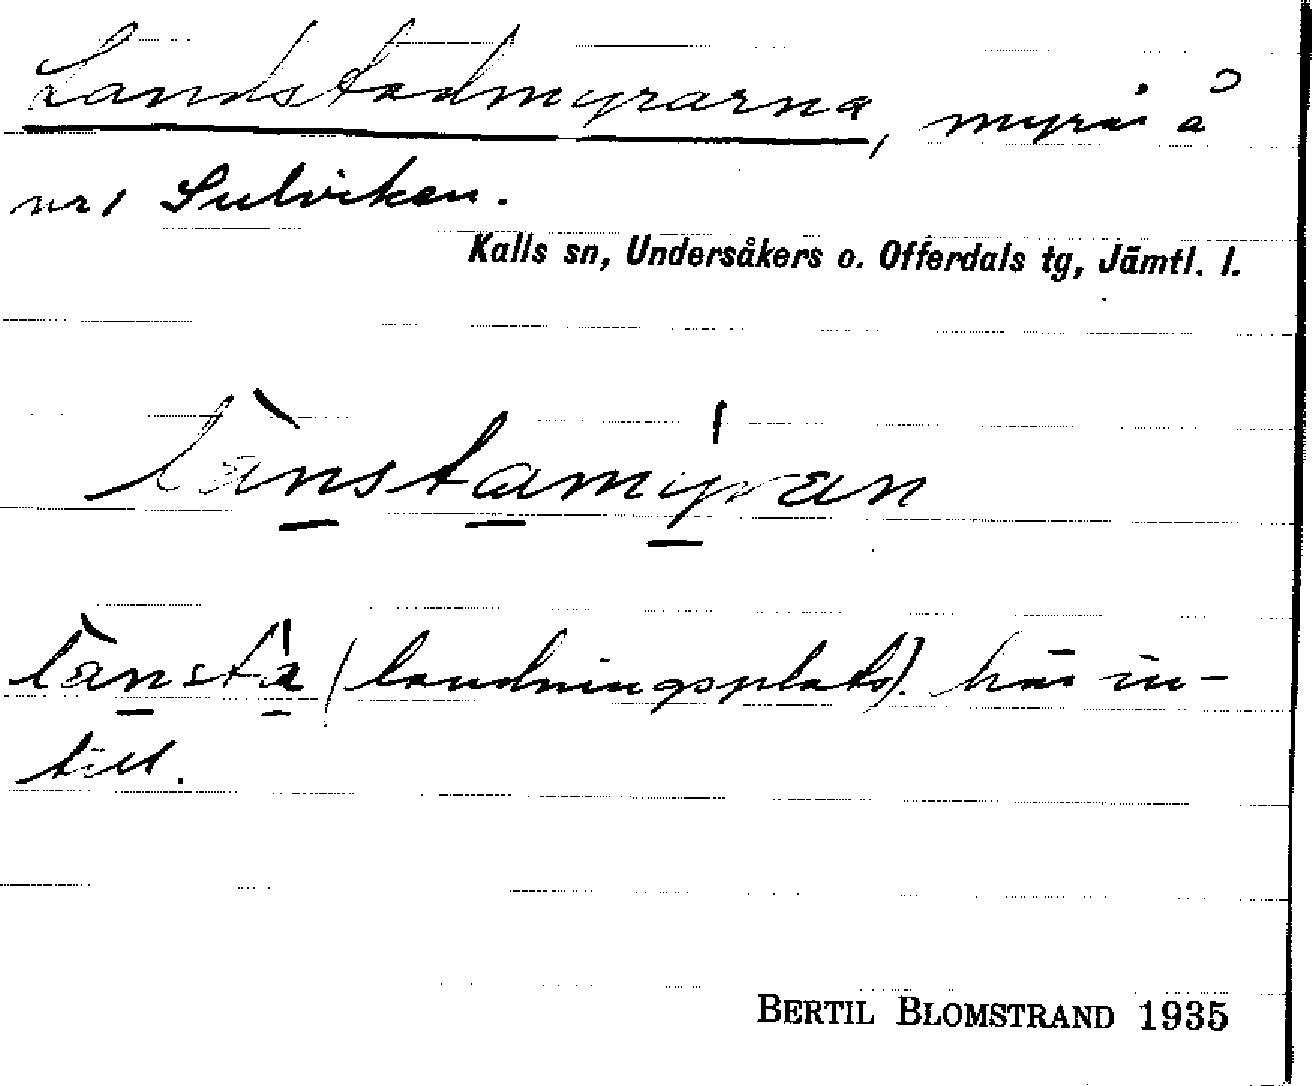 Landstadmyrarna, myrar å
nr 1 Sulviken.
Kalls sn, Undersåkers o. Offerdals tg, Jämtl. l.
lànstamy̍ran
lànsta̍ (landningsplats). här in-
till.
BERTIL BLOMSTRAND 1935